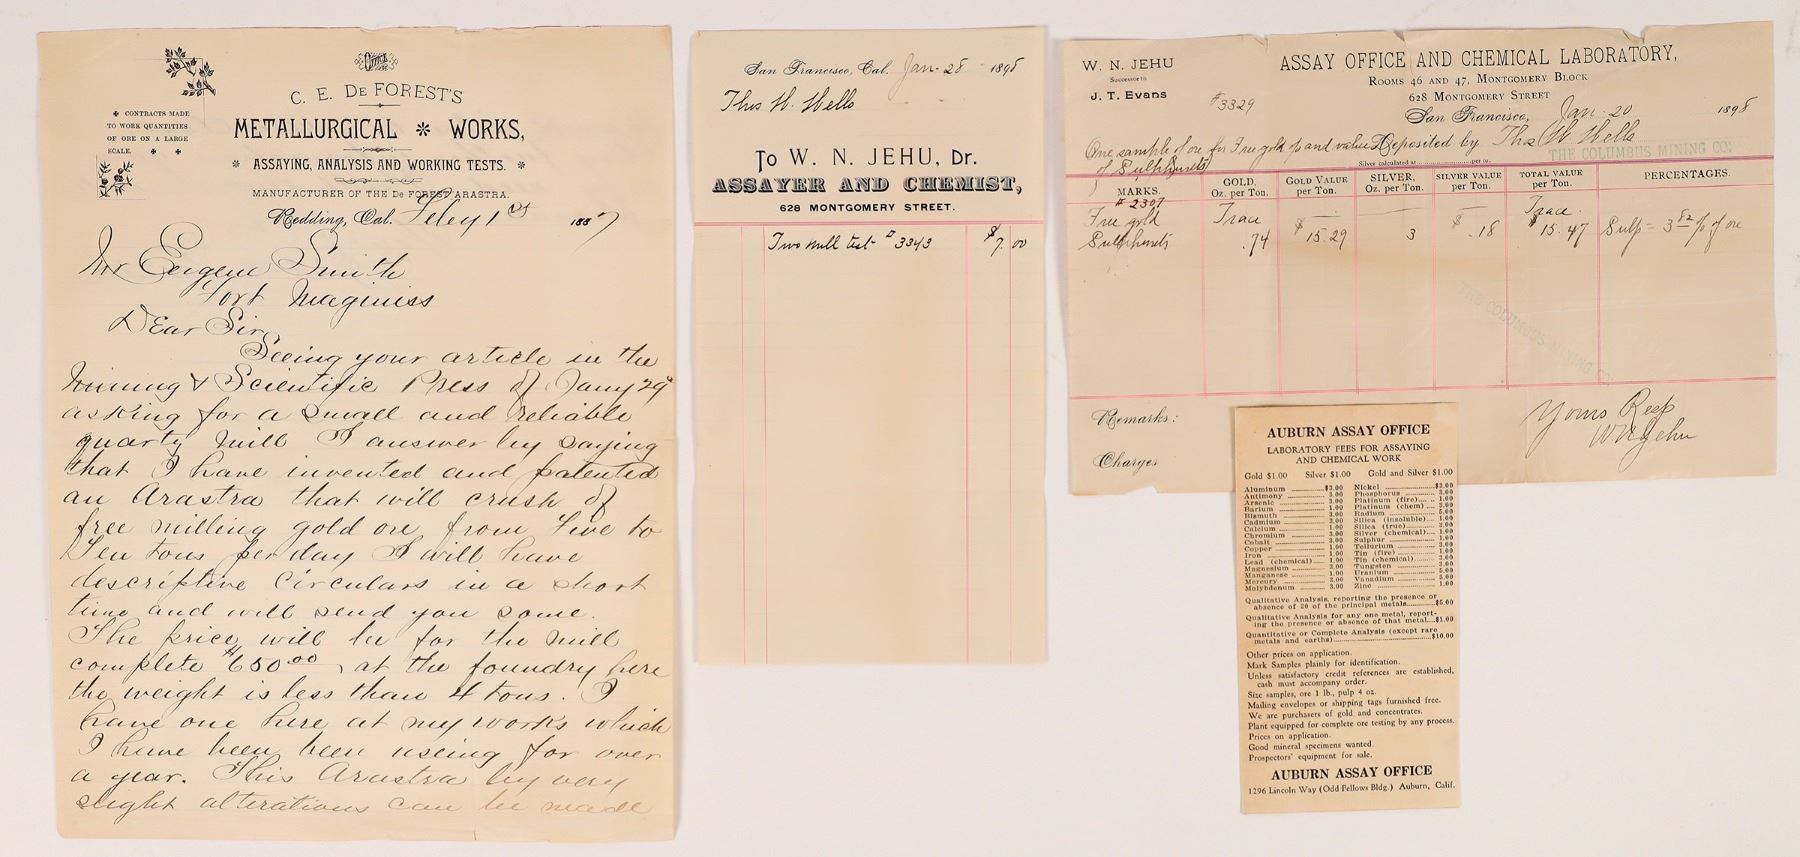 OFFICE
C. E. DE FOREST'S
CONTRACTS MADE
TO WORK QUANTITIES
OF ORE ON A LARGE
SCALE.
METALLURGICAL * WORKS,
* ASSAYING, ANALYSIS AND WORKING TESTS. *
MANUFACTURER OF THE DE FOREST ARASTRA.
Redding, Cal. Feby 1st 1887
Mr Eugene Smith
Fort Maginiss
Dear Sir
Seeing your article in the
Mining & Scientific Press of Jany 29"
asking for a small and reliable
quartz mill I answer by saying
that I have invented and patented
an Arastra that will crush of
free milling gold ore from Five to
Ten tons per day I will have
descriptive circulars in a short
time and will send you some.
The price will be for the mill
complete $650.00 at the foundry here
the weight is less than 4 tons. I
have one here at my works which
I have been been useing for over
a year. This Arastra by very
slight alterations can be made
San Francisco, Cal. Jan-28- 1898
Thos H. Wells
To W. N. JEHU, Dr.
ASSAYER AND CHEMIST,
628 MONTGOMERY STREET.
Two mill test # 3343 $7.00
W. N. JEHU
Successor to
J. T. Evans
#3329
ASSAY OFFICE AND CHEMICAL LABORATORY,
ROOMS 46 AND 47, MONTGOMERY BLOCK
628 MONTGOMERY STREET
San Francisco, Jan-20 1898
One sample of ore for Free gold and value Deposited by Thos H Wells
of Sulphurets
THE COLUMBUS MINING CO.
Silver calculated at per oz.
MARKS. GOLD, Oz. per Ton. GOLD VALUE per Ton. SILVER, Oz. per Ton. SILVER VALUE per Ton. TOTAL VALUE per Ton. PERCENTAGES.
# 2307
Free gold Trace Trace.
Sulphurets .74 $15.29 3 $.18 $15.47 Sulp = 3 82 % of ore
THE COLUMBUS MINING CO.
Remarks:
Charges
Yours Resp
W N Jehu
AUBURN ASSAY OFFICE
LABORATORY FEES FOR ASSAYING
AND CHEMICAL WORK
Gold $1.00 Silver $1.00 Gold and Silver $1.00
Aluminum $3.00
Antimony 3.00
Arsenic 3.00
Barium 1.00
Bismuth 3.00
Cadmium 3.00
Calcium 1.00
Chromium 3.00
Cobalt 3.00
Copper 1.00
Iron 1.00
Lead (chemical) 1.00
Magnesium 3.00
Manganese 1.00
Mercury 3.00
Molybdenum 3.00
Nickel $3.00
Phosphorus 3.00
Platinum (fire) 1.00
Platinum (chem) 3.00
Radium 5.00
Silica (insoluble) 1.00
Silica (true) 3.00
Silver (chemical) 1.00
Sulphur 1.00
Tellurium 3.00
Tin (fire) 1.00
Tin (chemical) 3.00
Tungsten 3.00
Uranium 5.00
Vanadium 3.00
Zinc 1.00
Qualitative Analysis, reporting the presence or
absence of 20 of the principal metals $5.00
Qualitative Analysis for any one metal, report-
ing the presence or absence of that metal $1.00
Quantitative or Complete Analysis (except rare
metals and earths) $10.00
Other prices on application.
Mark Samples plainly for identification.
Unless satisfactory credit references are established,
cash must accompany order.
Size samples, ore 1 lb., pulp 4 oz.
Mailing envelopes or shipping tags furnished free.
We are purchasers of gold and concentrates.
Plant equipped for complete ore testing by any process.
Prices on application.
Good mineral specimens wanted.
Prospectors' equipment for sale.
AUBURN ASSAY OFFICE
1296 Lincoln Way (Odd Fellows Bldg.) Auburn, Calif.